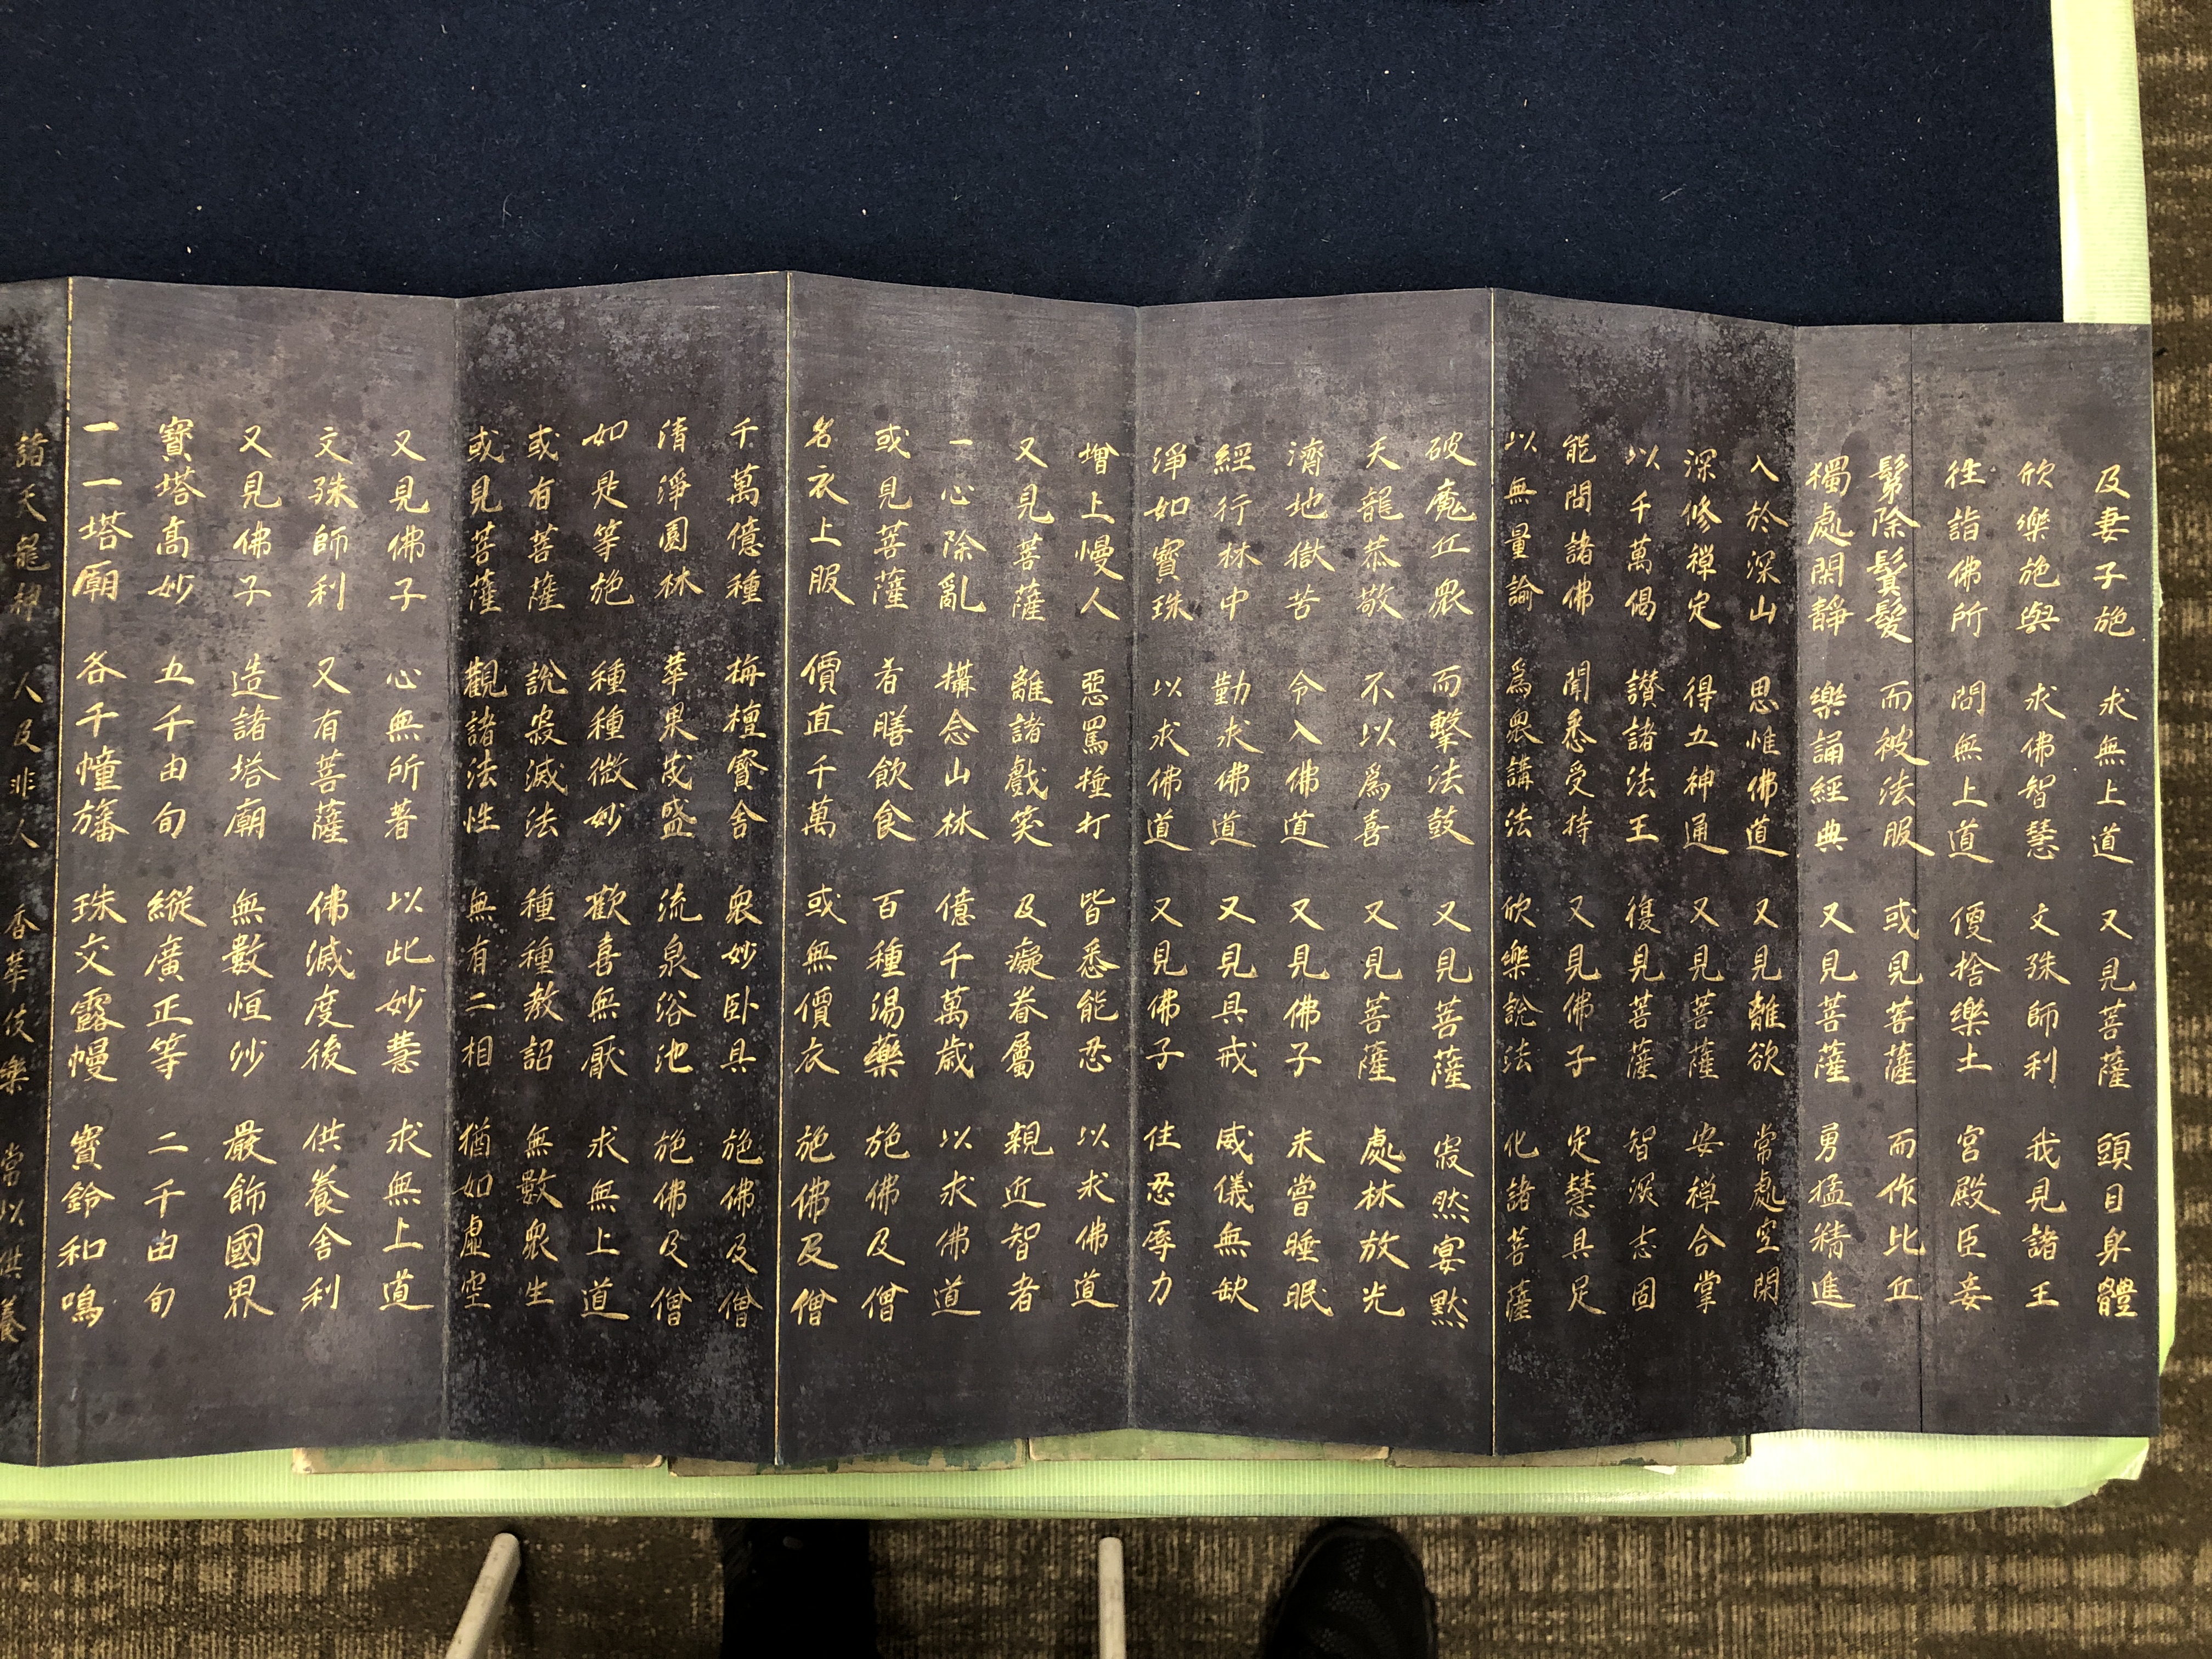 及妻子施 求無上道 又見菩薩 頭目身體
欣樂施與 求佛智慧 文殊師利 我見諸王
往詣佛所 問無上道 便捨樂土 宮殿臣妾
鬀除鬚髮 而被法服 或見菩薩 而作比丘
獨處閑靜 樂誦經典 又見菩薩 勇猛精進
入於深山 思惟佛道 又見離欲 常處空閑
深修禪定 得五神通 又見菩薩 安禪合掌
以千萬偈 讃諸法王 復見菩薩 智深志固
能問諸佛 聞悉受持 又見佛子 定慧具足
以無量諭 爲衆講法 欣樂說法 化諸菩薩
破魔丘衆 而擊法鼓 又見菩薩 寂然宴默
天龍恭敬 不以爲喜 又見菩薩 處林放光
濟地獄苦 令入佛道 又見佛子 未嘗睡眠
經行林中 勤求佛道 又見具戒 威儀無缺
淨如寶珠 以求佛道 又見佛子 住忍辱力
增上慢人 惡罵捶打 皆悉能忍 以求佛道
又見菩薩 離諸戲笑 及癡眷屬 親近智者
一心除亂 攝念山林 億千萬歲 以求佛道
或見菩薩 肴膳飲食 百種湯藥 施佛及僧
名衣上服 價直千萬 或無價衣 施佛及僧
千萬億種 栴檀寶舍 衆妙卧具 施佛及僧
清淨園林 華果茂盛 流泉浴池 施佛及僧
如是等施 種種微妙 歡喜無厭 求無上道
或有菩薩 說寂滅法 種種教詔 無數衆生
或見菩薩 觀諸法性 無有二相 猶如虛空
又見佛子 心無所著 以此妙慧 求無上道
文殊師利 又有菩薩 佛滅度後 供養舍利
又見佛子 造諸塔廟 無數恒沙 嚴飾國界
寶塔高妙 五千由旬 縱廣正等 二千由旬
一一塔廟 各千幢旛 珠交露幔 寶鈴和鳴
諸天龍神 人及非人 香華伎樂 常以供養